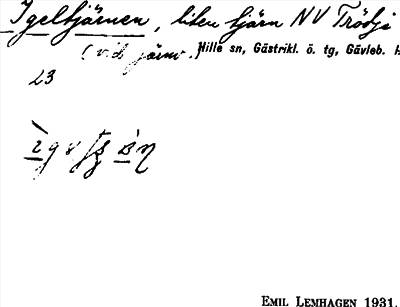 Igeltjärnen, liten tjärn NV Trödje
(vid järnv.) Hille sn, Gästrikl. ö. tg, Gävleb.
23
EMIL LEMHAGEN 1931.